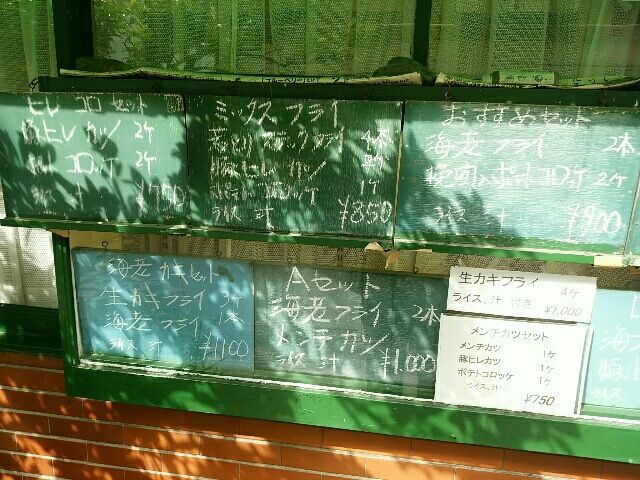 ヒレコロセット
豚ヒレカツ 2ケ
コロッケ 2ケ
ミックスフライ
若どりスティックフライ 4本
豚ヒレカツ
コロッケ 1ケ
ライス 汁 ¥850
おすすめセット
海老フライ 2本
コロッケ 2ケ
ライス 汁 ¥900
海老カキセット
生カキフライ 3ケ
海老フライ 1本
ライス 汁 ¥1100
Aセット
海老フライ 2本
メンチカツ
ライス 汁 ¥1,000
生カキフライ 4ケ
ライス、汁 付き ¥1,000
メンチカツセット
メンチカツ 1ケ
豚ヒレカツ 1ケ
ポテトコロッケ 1ケ
ライス、汁ケ
¥750
海老
豚ヒレ
ライス